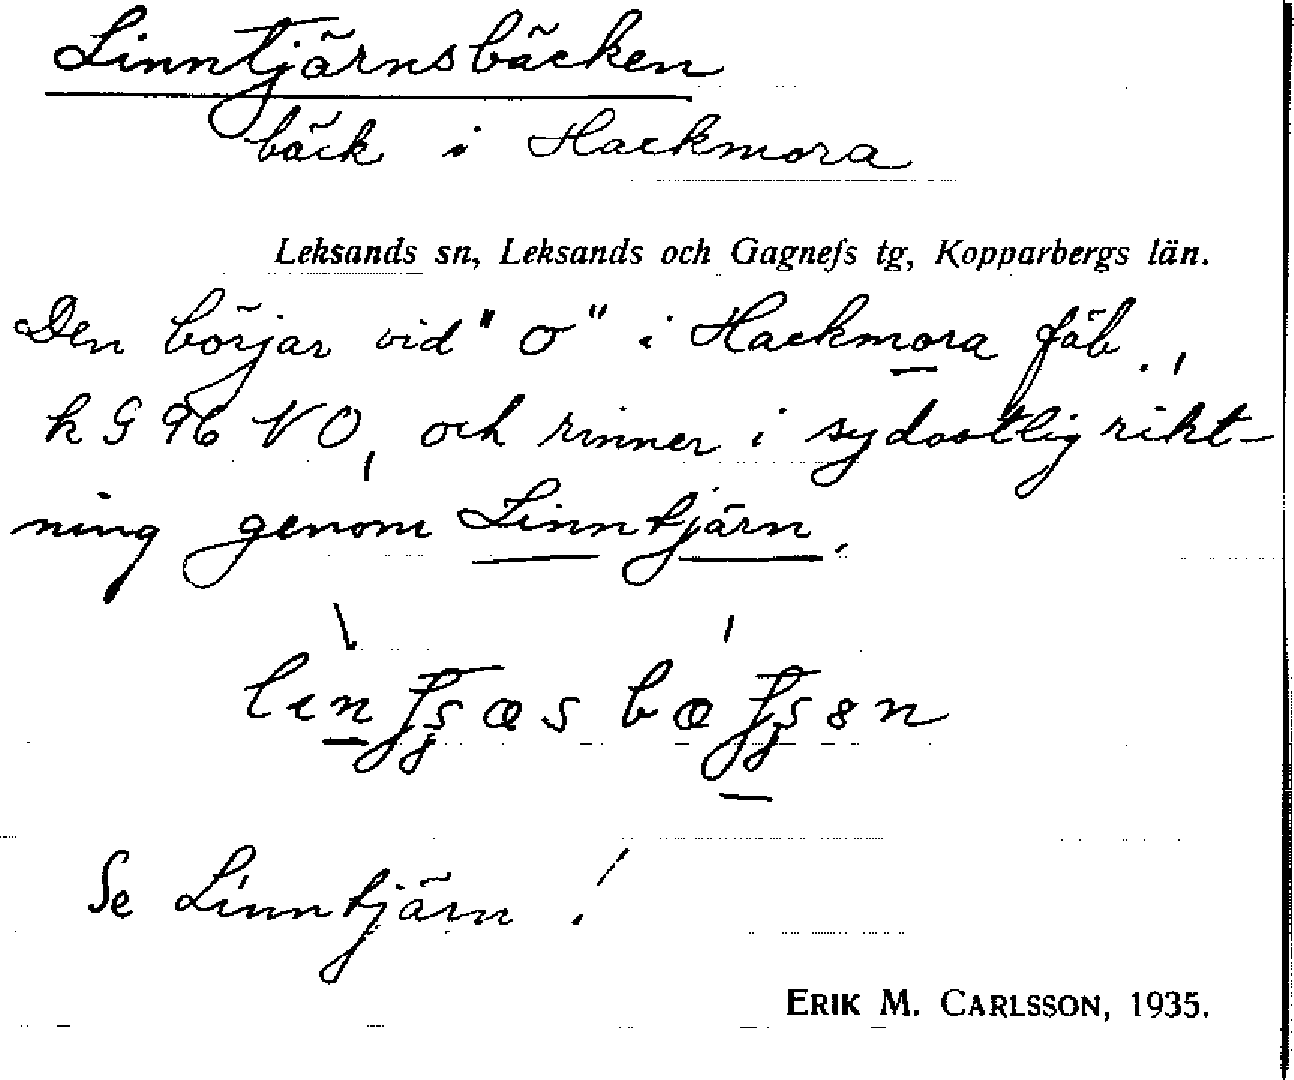 Linntjärnsbäcken
bäck i Hackmora
Leksands sn, Leksands och Gagnefs tg, Kopparbergs län.
Den börjar vid "o" i Hackmora fäb.,
k G 96 NO, och rinner i sydostlig rikt-
ning genom Linntjärn.
Se Linntjärn!
ERIK M. CARLSSON, 1935.